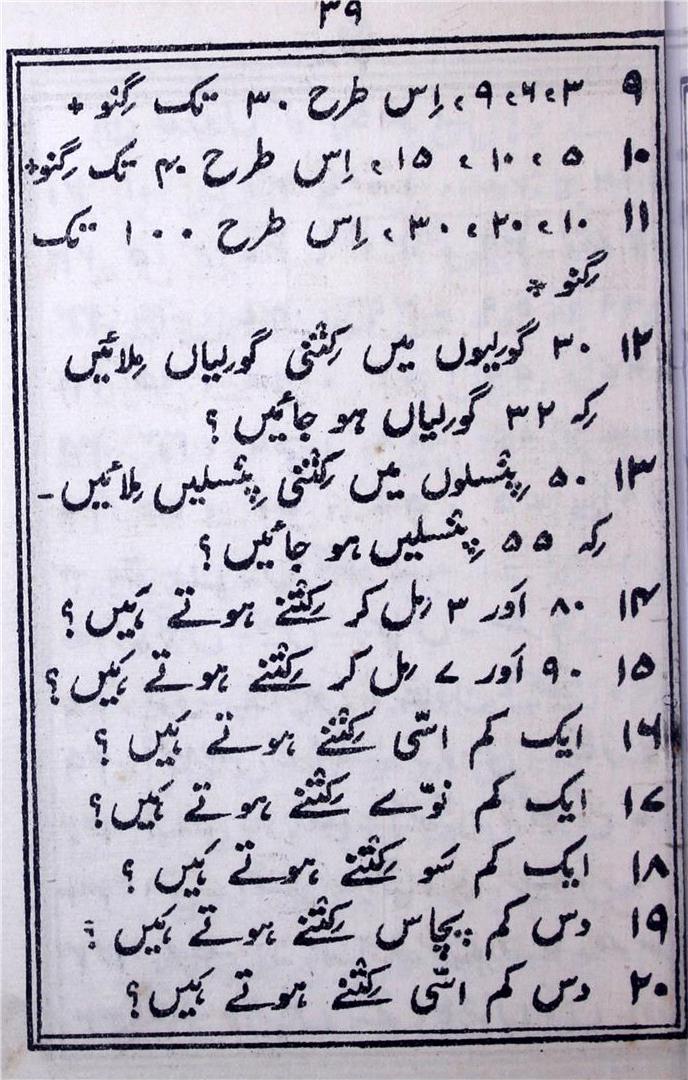 ۳۹
۹ ۳، ۶، ۹، اِس طرح ۳۰ تک گِنو +
۱۰ ۵، ۱۰، ۱۵، اِس طرح ۴۰ تک گِنو +
۱۱ ۱۰، ۲۰، ۳۰، اِس طرح ۱۰۰ تک
گِنو +
۱۲ ۳۰ گولیوں میں کِتنی گولیاں مِلائیں
کہ ۳۲ گولیاں ہو جائیں ؟
۱۳ ۵۰ پِنسلوں میں کِتنی پِنسلیں مِلائیں -
کہ ۵۵ پِنسلیں ہو جائیں ؟
۱۴ ۸۰ اَور ۳ مِل کر کِتنے ہوتے ہَیں ؟
۱۵ ۹۰ اَور ۷ مِل کر کِتنے ہوتے ہَیں ؟
۱۶ ایک کم اسّی کِتنے ہوتے ہَیں ؟
۱۷ ایک کم نوّے کِتنے ہوتے ہَیں ؟
۱۸ ایک کم سَو کِتنے ہوتے ہَیں ؟
۱۹ دس کم پچاس کِتنے ہوتے ہَیں ؟
۲۰ دس کم اسّی کِتنے ہوتے ہَیں ؟